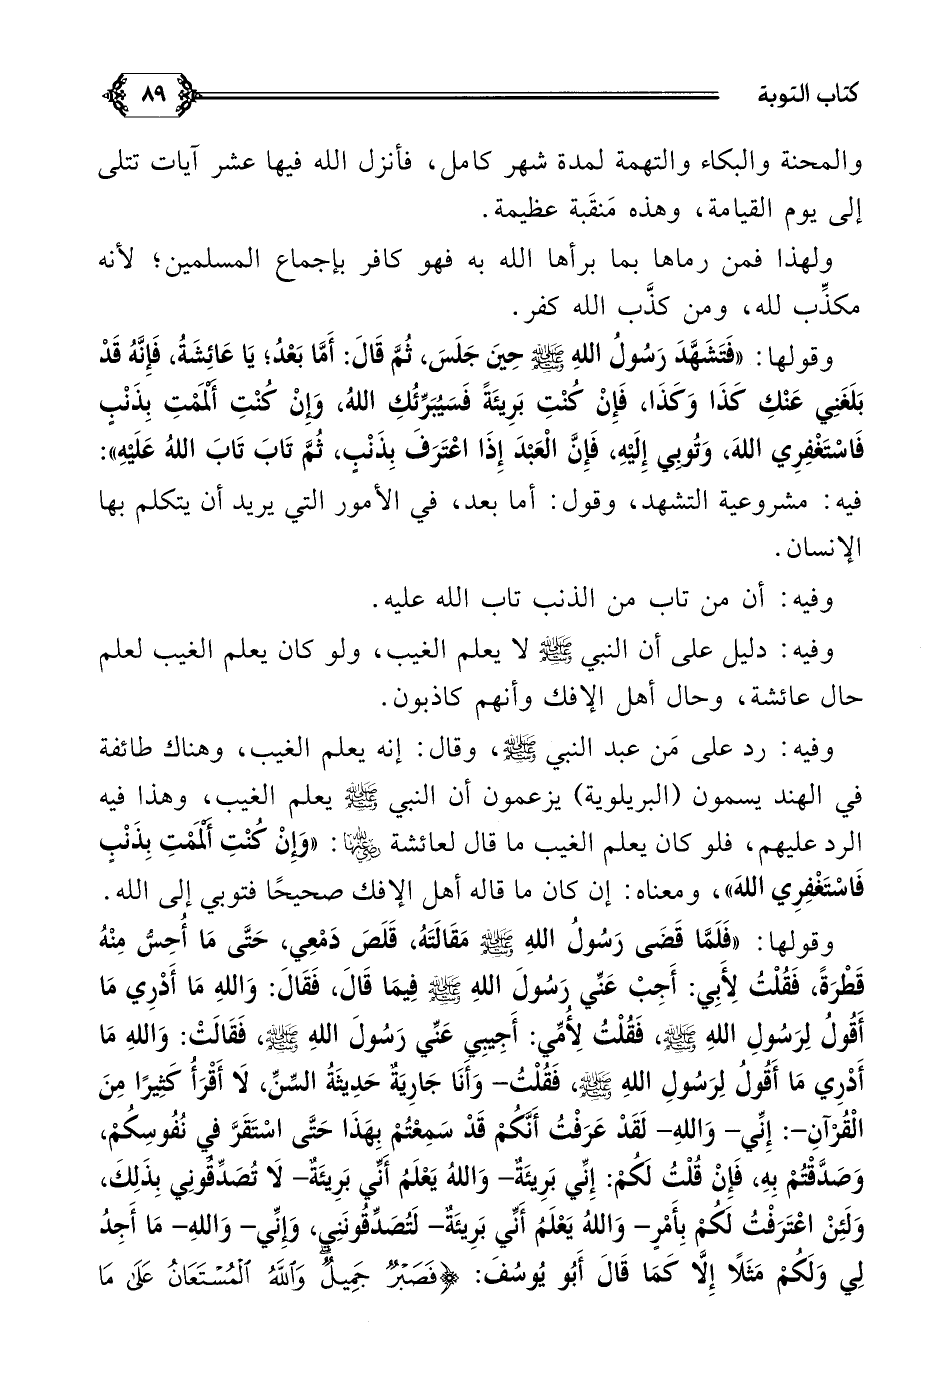 كتاب التوبة ٨٩
والمحنة والبكاء والتهمة لمدة شهر كامل، فأنزل الله فيها عشر آيات تتلى
إلى يوم القيامة، وهذه مَنقَبة عظيمة.
ولهذا فمن رماها بما برأها الله به فهو كافر بإجماع المسلمين؛ لأنه
مكذِّب لله، ومن كذَّب الله كفر.
وقولها: «فَتَشَهَّدَ رَسُولُ اللهِ ﷺ حِينَ جَلَسَ، ثُمَّ قَالَ: أَمَّا بَعْدُ؛ يَا عَائِشَةُ، فَإِنَّهُ قَدْ
بَلَغَنِي عَنْكِ كَذَا وَكَذَا، فَإِنْ كُنْتِ بَرِيئَةً فَسَيُبَرِّئُكِ اللهُ، وَإِنْ كُنْتِ أَلْمَمْتِ بِذَنْبٍ
فَاسْتَغْفِرِي اللهَ، وَتُوبِي إِلَيْهِ، فَإِنَّ الْعَبْدَ إِذَا اعْتَرَفَ بِذَنْبٍ، ثُمَّ تَابَ تَابَ اللهُ عَلَيْهِ»:
فيه: مشروعية التشهد، وقول: أما بعد، في الأمور التي يريد أن يتكلم بها
الإنسان.
وفيه: أن من تاب من الذنب تاب الله عليه.
وفيه: دليل على أن النبي ﷺ لا يعلم الغيب، ولو كان يعلم الغيب لعلم
حال عائشة، وحال أهل الإفك وأنهم كاذبون.
وفيه: رد على مَن عبد النبي ﷺ، وقال: إنه يعلم الغيب، وهناك طائفة
في الهند يسمون (البريلوية) يزعمون أن النبي ﷺ يعلم الغيب، وهذا فيه
الرد عليهم، فلو كان يعلم الغيب ما قال لعائشة رضي الله عنها: «وَإِنْ كُنْتِ أَلْمَمْتِ بِذَنْبٍ
فَاسْتَغْفِرِي اللهَ»، ومعناه: إن كان ما قاله أهل الإفك صحيحًا فتوبي إلى الله.
وقولها: «فَلَمَّا قَضَى رَسُولُ اللهِ ﷺ مَقَالَتَهُ، قَلَصَ دَمْعِي، حَتَّى مَا أُحِسُّ مِنْهُ
قَطْرَةً، فَقُلْتُ لِأَبِي: أَجِبْ عَنِّي رَسُولَ اللهِ ﷺ فِيمَا قَالَ، فَقَالَ: وَاللهِ مَا أَدْرِي مَا
أَقُولُ لِرَسُولِ اللهِ ﷺ، فَقُلْتُ لِأُمِّي: أَجِيبِي عَنِّي رَسُولَ اللهِ ﷺ، فَقَالَتْ: وَاللهِ مَا
أَدْرِي مَا أَقُولُ لِرَسُولِ اللهِ ﷺ، فَقُلْتُ- وَأَنَا جَارِيَةٌ حَدِيثَةُ السِّنِّ، لَا أَقْرَأُ كَثِيرًا مِنَ
الْقُرْآنِ-: إِنِّي- وَاللهِ- لَقَدْ عَرَفْتُ أَنَّكُمْ قَدْ سَمِعْتُمْ بِهَذَا حَتَّى اسْتَقَرَّ فِي نُفُوسِكُمْ،
وَصَدَّقْتُمْ بِهِ، فَإِنْ قُلْتُ لَكُمْ: إِنِّي بَرِيئَةٌ- وَاللهُ يَعْلَمُ أَنِّي بَرِيئَةٌ- لَا تُصَدِّقُونِي بِذَلِكَ،
وَلَئِنْ اعْتَرَفْتُ لَكُمْ بِأَمْرٍ- وَاللهُ يَعْلَمُ أَنِّي بَرِيئَةٌ- لَتُصَدِّقُونَنِي، وَإِنِّي- وَاللهِ- مَا أَجِدُ
لِي وَلَكُمْ مَثَلًا إِلَّا كَمَا قَالَ أَبُو يُوسُفَ: ﴿فَصَبْرٌ جَمِيلٌ وَٱللَّهُ ٱلْمُسْتَعَانُ عَلَىٰ مَا